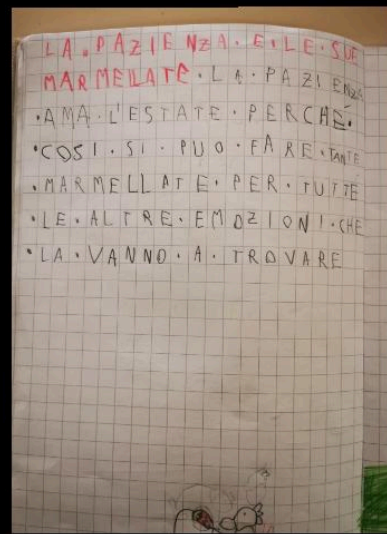 LA.PAZIENZA.E.LE.SUE
MARMELLATE.LA.PAZIENZA
.AMA.L'ESTATE.PERCHÉ.
.COSI.SI.PUO.FARE.TANTE
.MARMELLATE.PER.TUTTE
.LE.ALTRE.EMOZIONI.CHE
.LA.VANNO.A.TROVARE